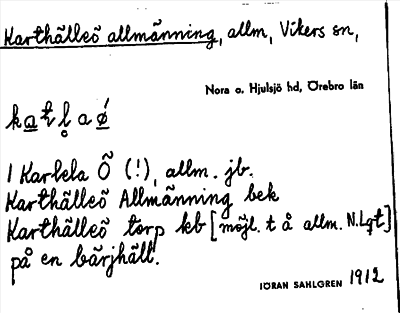 Karthälleö allmänning, allm, Vikers sn,
Nora o. Hjulsjö hd, Örebro län
I Karlela Ö (!), allm. jb.
Karthälleö Allmänning bek
Karthälleö torp kb [möjl. t å allm. N.Lgt]
på en bärjhäll.
IÖRAN SAHLGREN 1912